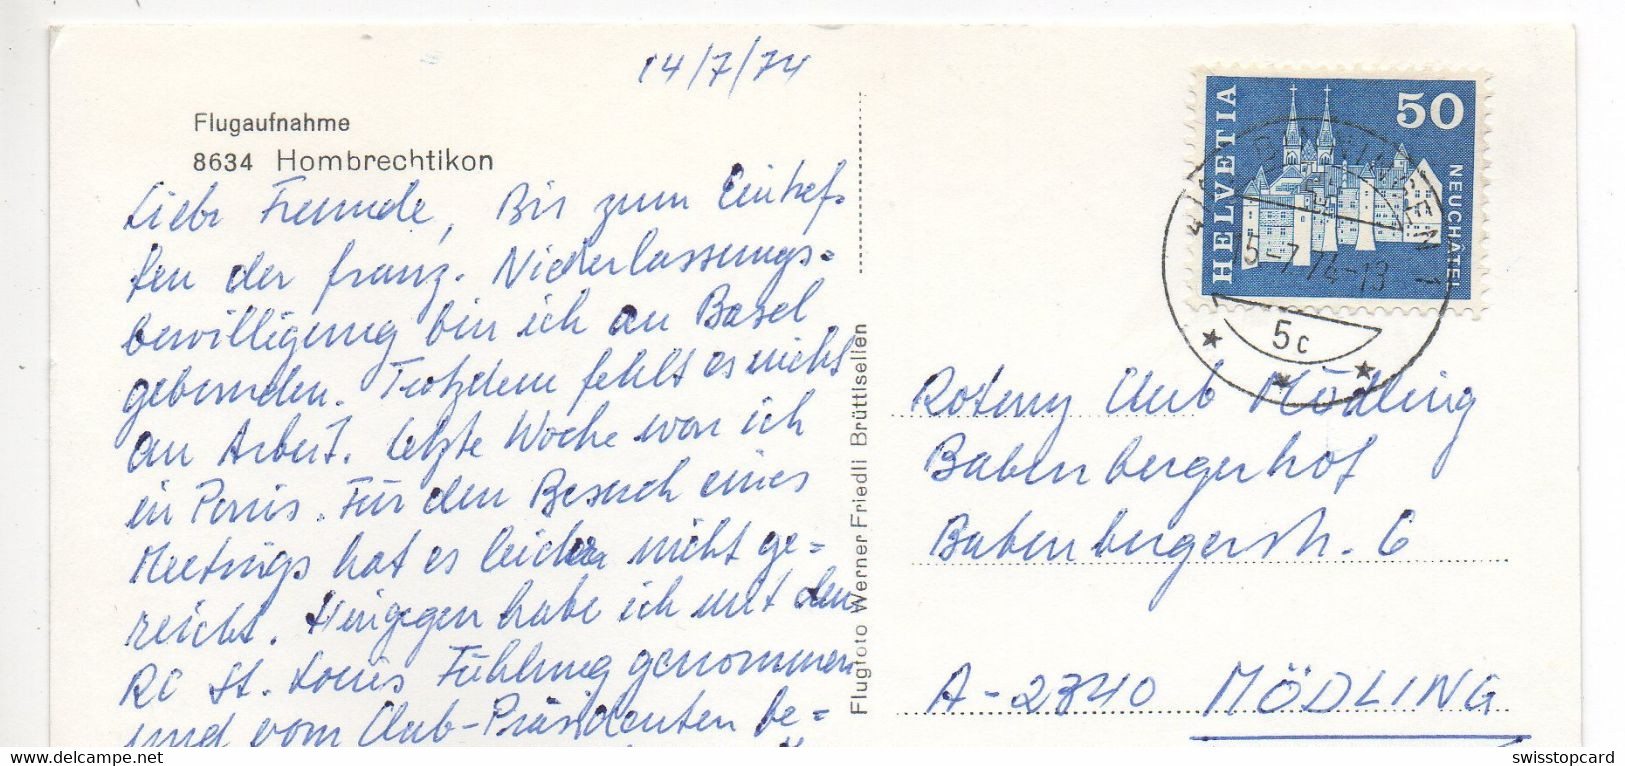 14/7/74
Flugaufnahme
8634 Hombrechtikon
Liebe Freunde, Bis zum Eintref-
fen der franz. Niederlassungs=
bewilligung bin ich an Basel
gebunden. Trotzdem fehlt es nicht
an Arbeit. Letzte Woche war ich
in Paris. Für den Besuch eines
Meetings hat es leider nicht ge=
reicht. Hingegen habe ich mit dem
RC St. Louis Fühlung genommen
und vom Club-Präsidenten be=
Flugfoto Werner Friedli Brüttisellen
HELVETIA
50
NEUCHÂTEL
15-7.74-13
5c
Rotary Club Mödling
Babenbergerhof
Babenbergerstr. 6
A-2340 MÖDLING
swisstopcard